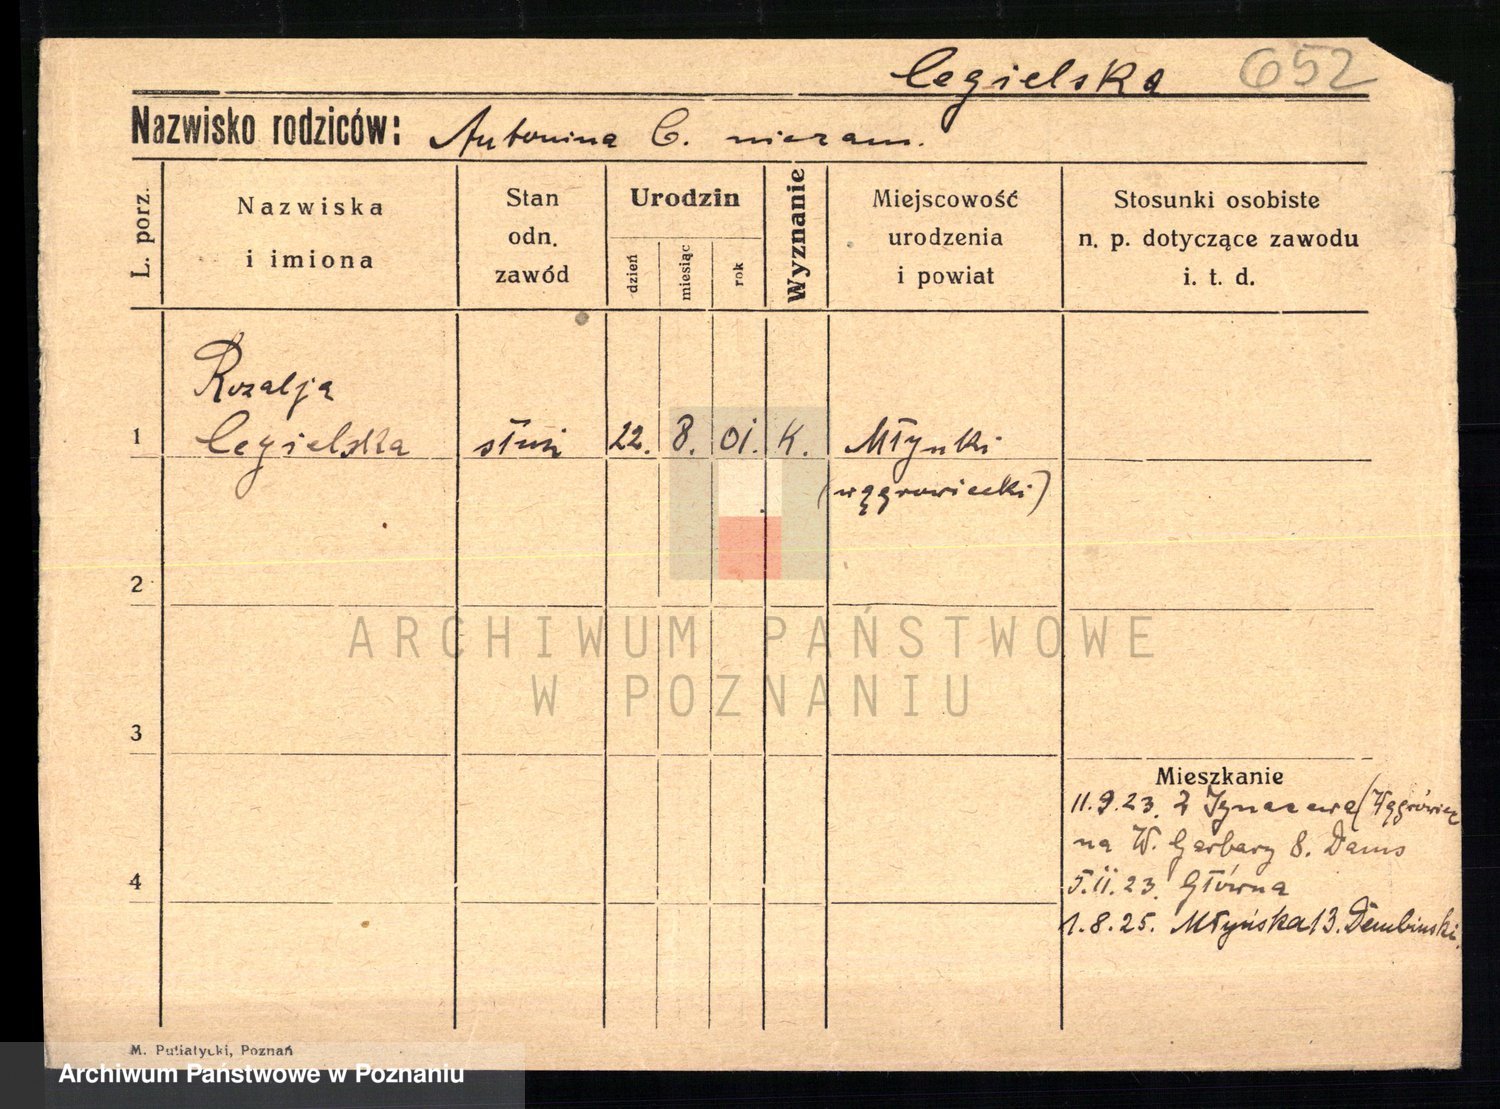 Cegielska 652
Nazwisko rodziców: Antonina C. niezam.
L. porz.
Nazwiska
i imiona
Stan
odn.
zawód
Urodzin
dzień
miesiąc
rok
Wyznanie
Miejscowość
urodzenia
i powiat
Stosunki osobiste
n. p. dotyczące zawodu
i. t. d.
Rozalja
1 Cegielska służ 22. 8. 01. K. Młynki
(wągrowiecki)
2
ARCHIWUM PAŃSTWOWE
W POZNANIU
3
Mieszkanie
11.9.23. z Ignacewa (Wągrówiec
na W. Garbary 8. Dams
4
5.11.23. Główna
1.8.25. Młyńska 13. Dembinski.
M. Putiatycki, Poznań
Archiwum Państwowe w Poznaniu